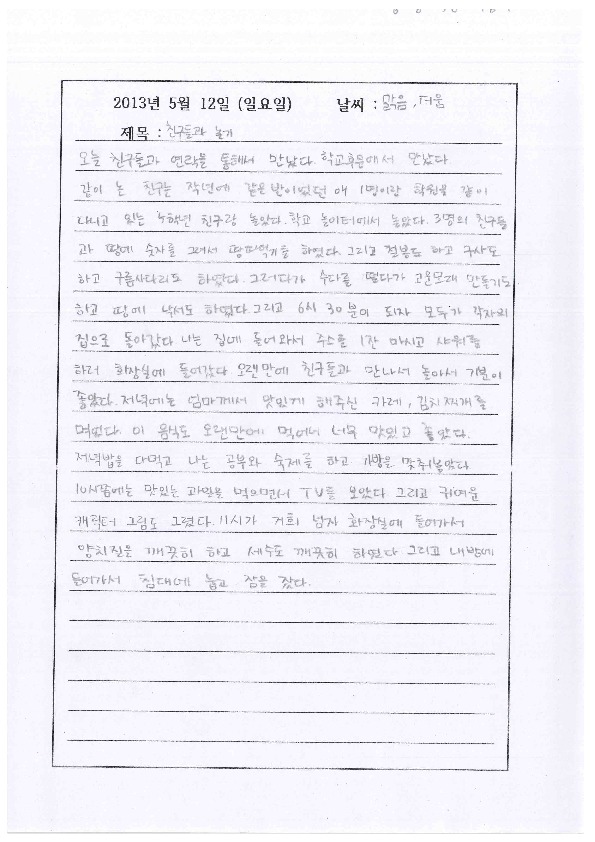 2013년 5월 12일 (일요일) 날씨 : 맑음, 더움
제목 : 친구들과 놀기
오늘 친구들과 연락을 통해서 만났다. 학교후문에서 만났다
같이 논 친구는 작년에 같은반이었던 애 1명이랑 학원을 같이
다니고 있는 5학년 친구랑 놀았다. 학교 놀이터에서 놀았다. 3명의 친구들
과 땅에 숫자를 그려서 땅따먹기를 하였다. 그리고 철봉도 하고
하고 구름사다리도 하였다. 그러다가 수다를 떨다가 고운모래 만들기도
하고 땅에 낙서도 하였다. 그리고 6시 30분이 되자 모두가 각자의
집으로 돌아갔다 나는 집에 들어와서 주스를 1잔 마시고 샤워를
하러 화장실에 들어갔다 오랜만에 친구들과 만나서 놀아서 기분이
좋았다. 저녁에는 엄마께서 맛있게 해주신 카레, 김치찌개를
먹었다. 이 음식도 오랜만에 먹어서 너무 맛있고 좋았다.
저녁밥을 다먹고 나는 공부와 숙제를 하고 가방을 맞춰놓았다
10시쯤에는 맛있는 과일을 먹으면서 TV를 보았다 그리고 귀여운
캐릭터 그림도 그렸다. 11시가 거희 넘자 화장실에 들어가서
양치질을 깨끗히 하고 세수도 깨끗히 하였다 그리고 내방에
들어가서 침대에 눕고 잠을 잤다.